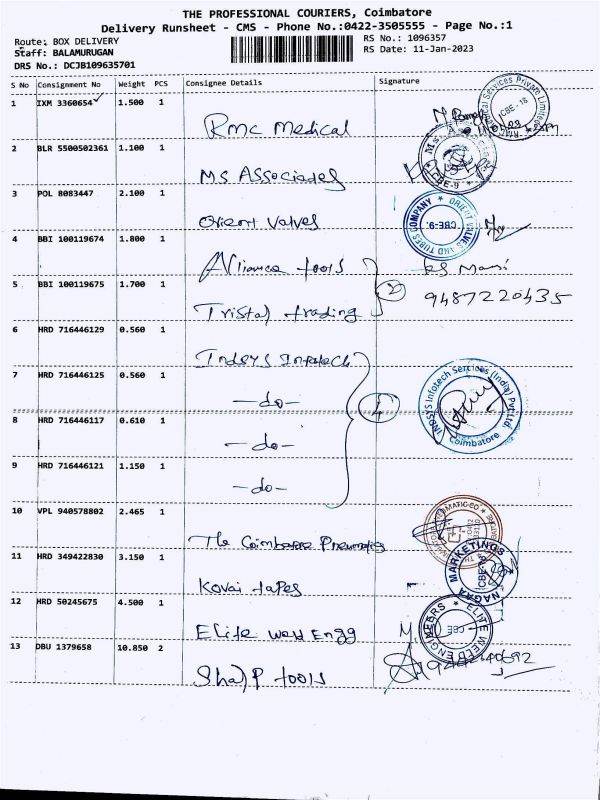 THE PROFESSIONAL COURIERS, Coimbatore
Delivery Runsheet - CMS - Phone No.:0422-3505555 - Page No.:1
Route: BOX DELIVERY RS No.: 1096357
Staff: BALAMURUGAN RS Date: 11-Jan-2023
DRS No.: DCJB109635701
S No Consignment No Weight PCS Consignee Details Signature
1 IXM 3360654 1.500 1
RMC Medical
2 BLR 5500502361 1.100 1
MS Associates
3 POL 8083447 2.100 1
Orient Valves
4 BBI 100119674 1.800 1
Alliance tools
5 BBI 100119675 1.700 1
2 9487220435
Tristar trading
6 HRD 716446129 0.560 1
Indsys Infotech
7 HRD 716446125 0.560 1
-do-
4
8 HRD 716446117 0.610 1
-do-
9 HRD 716446121 1.150 1
-do-
10 VPL 940578802 2.465 1
The Coimbatore Pneumatics
11 HRD 349422830 3.150 1
Kovai tapes
12 HRD 50245675 4.500 1
Elite weld Engg
13 DBU 1379658 10.850 2
Sharp tools
CBE-18
CBE-9
ORIENT VALVES AND TUBES COMPANY
CBE-9.
INDSYS Infotech Services (India) Pvt.Ltd.
Coimbatore
NAGAA MARKETINGS
ELITE WELD ENGINEERS
CBE